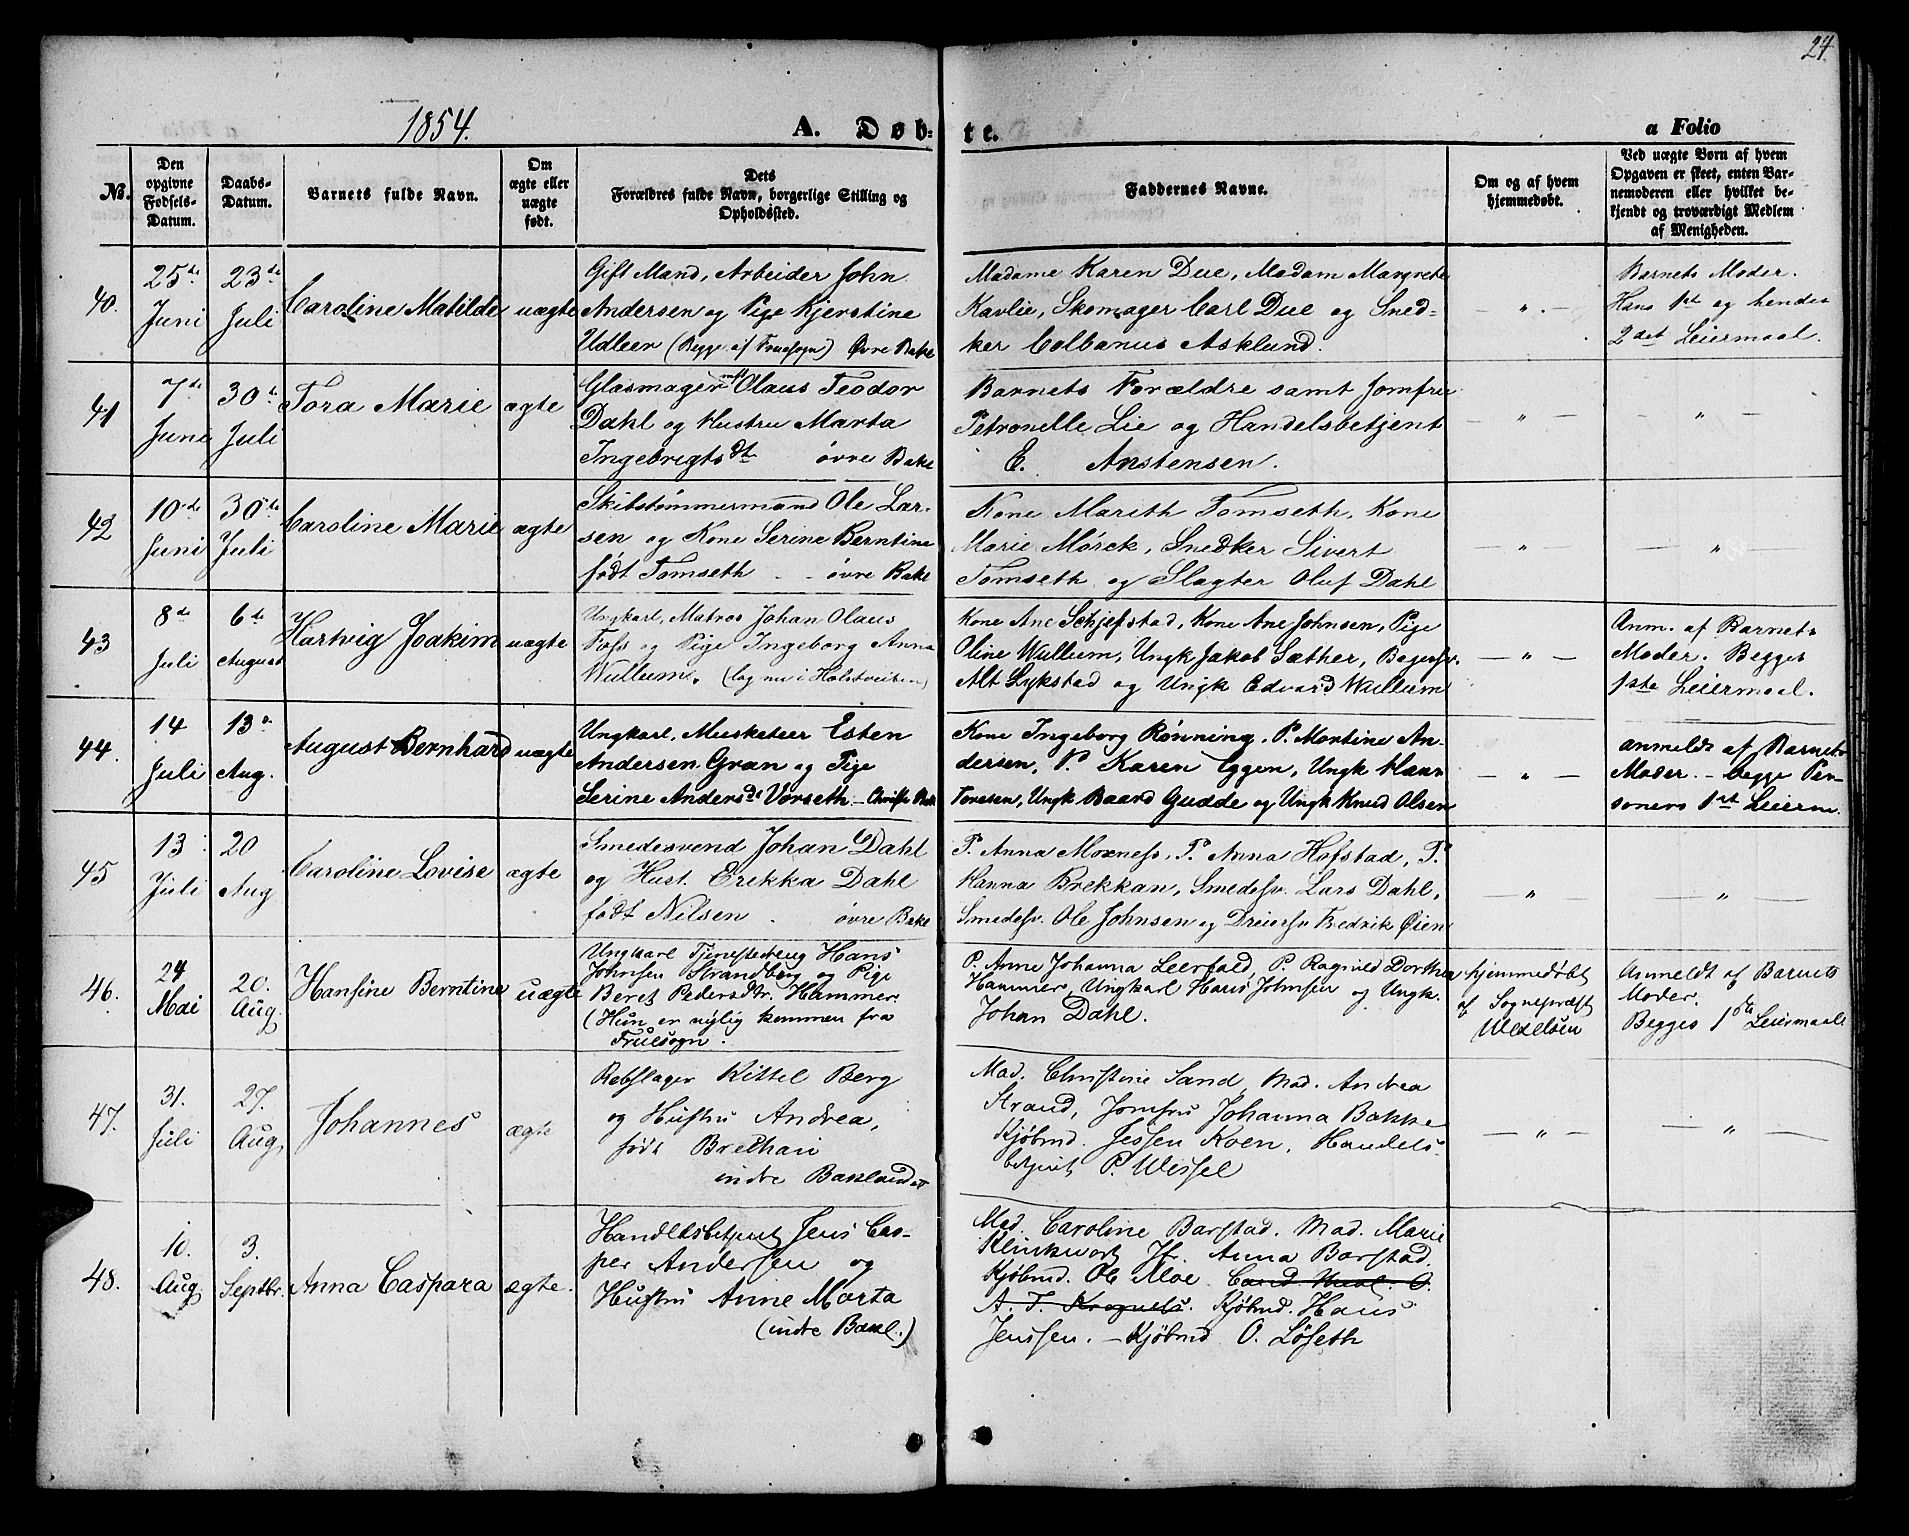 27.
1854.
A. Døb-
te.
a Folio
No.
Den opgivne Fødsels-Datum.
Daabs-Datum.
Barnets fulde Navn.
Om ægte eller uægte født.
Dets Forældres fulde Navn, borgerlige Stilling og Opholdssted.
Faddernes Navne.
Om og af hvem hjemmedøbt.
Ved uægte Børn af hvem Opgaven er skeet, enten Bar-nemoderen eller hvilket be-kjendt og troværdigt Medlem af Menigheden.
40.
25de Juni
23de Juli
Caroline Matilde
uægte
Gift Mand, Arbeider John
Andersen og Pige Kjerstine
Udleer (Begge af Fruesogn) Øvre Bake
Madame Karen Due, Madam Margrete
Kavlie, Skomager Carl Due og Sned-
ker Colbanus Asklund.
— " —
Barnets Moder.
Hans 1st og hendes
2det Leiermaal.
41
7de Juni
30te Juli
Tora Marie
ægte
Glasmagermst Olaus Teodor
Dahl og Hustru Marta
Ingebrigtsdt øvre Bake
Barnets Forældre samt Jomfru
Petronelle Lie og Handelsbetjent
E. Anstensen.
— " —
— " —
42
10de Juni
30te Juli
Caroline Marie
ægte
Skibstømmermand Ole Lar-
sen og Kone Serine Berntine
født Tomseth - - øvre Bake
Kone Marith Tomseth, Kone
Marie Mørck, Snedker Sivert
Tomseth og Slagter Oluf Dahl
— " —
— " —
43
8de Juli
6te August
Hartvig Joakim
uægte
Ungkarl, Matros Johan Olaus
Foss og Pige Ingeborg Anna
Wullum. (log nu i Holstveiten)
Kone Ane Schjefstad, Kone Ane Johnsen, Pige
Oline Wullum, Ungk Jakob Sæther,
Alt Lykstad og Ungk Edvard Wullum
— " —
Anm. af Barnets
Moder. Begges
1ste Leiermaal.
44.
14 Juli
13de Aug.
August Bernhard
uægte
Ungkarl, Musketeer Esten
Andersen Gran og Pige
Serine Andersdt Vorseth — Christi Bak
Kone Ingeborg Rønning, P. Martine An-
dersen, P. Karen Eggen, Ungk Hans
Toresen, Ungk Baard Gudde og Ungk Knud Olsen
— " —
anmeldt af Barnets
Moder. — begge Per-
soners 1st Leierm.
45
13 Juli
20 Aug
Caroline Lovise
ægte
Smedesvend Johan Dahl
og Hust. Erikka Dahl
født Nilsen - øvre Bake
P. Anna Moxness, P. Anna Hofstad, P.
Hanna Brekkan, Smedesv. Lars Dahl,
Smedesv. Ole Johnsen og Dreiersv Fredrik Øien
— " —
"
46.
24 Mai
20. Aug.
Hansine Berntine
uægte
Ungkarl Tjenestedreng Hans
Johnsen Strandberg og Pige
Beret Pedersdtr. Hammer.
(Hun er nylig kommen fra
Fruesogn.
P. Anne Johanna Leerfald, P. Ragnild Dorthea
Hammer, Ungkarl Hans Johnsen og Ungk.
Johan Dahl.
hjemmedøbt
af Sognepræst
Wexelsen
Anmeldt af Barnets
Moder.
Begges 1ste Leiermaal
47.
31. Juli
27. Aug
Johannes
ægte
Rebslager Kittel Berg
og Hustru Andrea,
født Brethan
indre Baklandet
Mad. Christine Sand, Mad. Andrea
Strand, Jomfru Johanna Bakke
Kjøbmd. Jessen Koen, Handels-
betjent P. Wessel
— " —
— " —
48.
10. Aug
3. Septbr.
Anna Caspara
ægte.
Handelsbetjent Jens Cas-
per Andersen og
Hustru Anne Marta
(indre Bakl.)
Mad. Caroline Barstad. Mad. Marie
Klinkwort Jfr. Anna Barstad.
Kjøbmd. Ole Moe. Cand. O.
A. T. Kjøbmd. Hans
Jenssen. — Kjøbmd O. Løseth